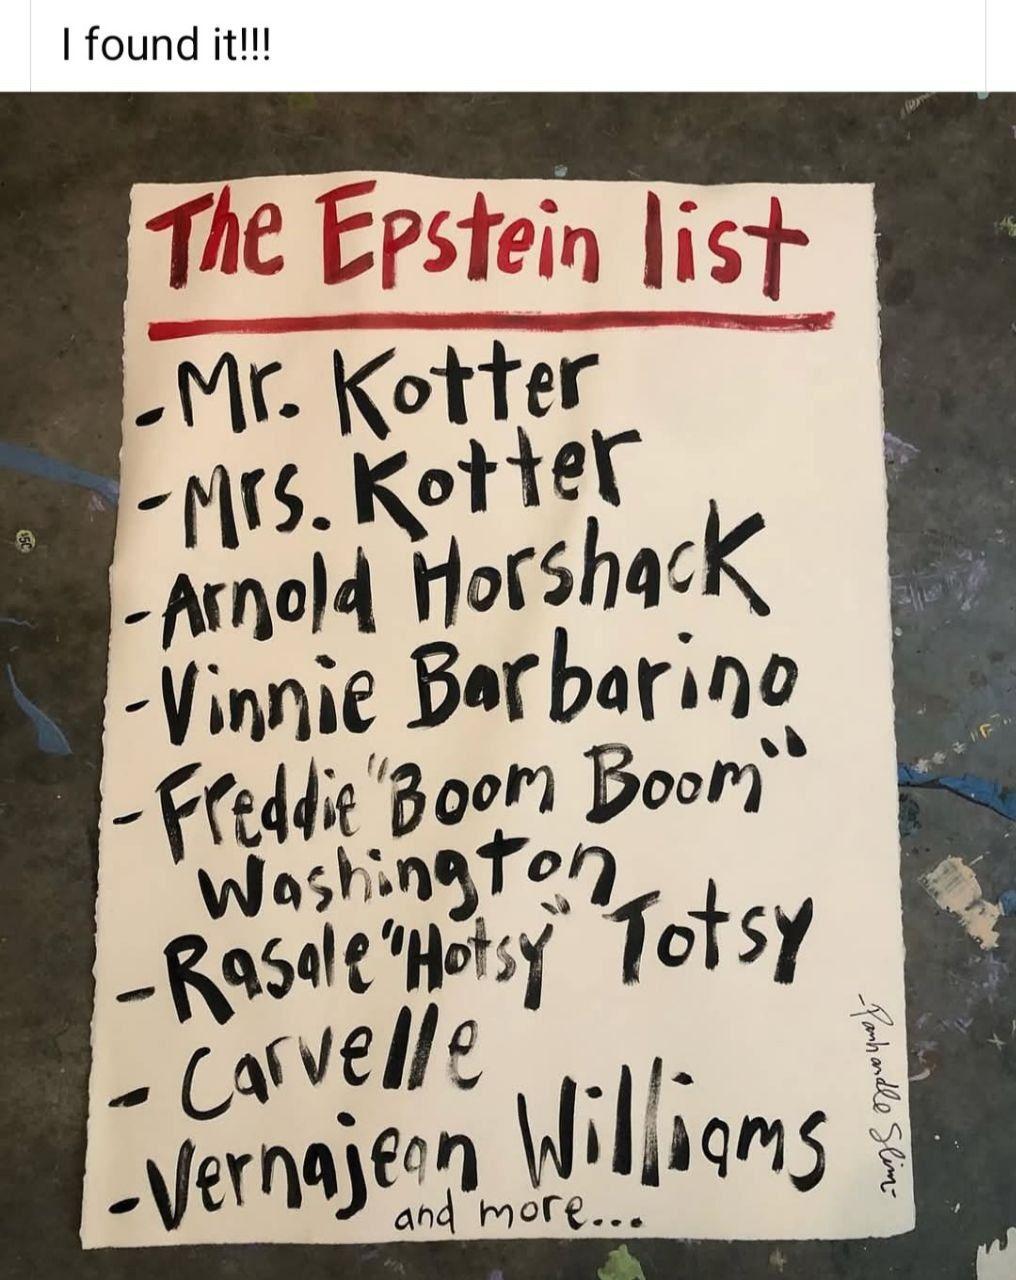 I found it!!!
The Epstein list
- Mr. Kotter
- Mrs. Kotter
- Arnold Horshack
- Vinnie Barbarino
- Freddie "Boom Boom"
Washington
- Rasale "Hotsy" Totsy
- Carvelle
- Vernajean Williams
and more...
-Panhandle Slim-